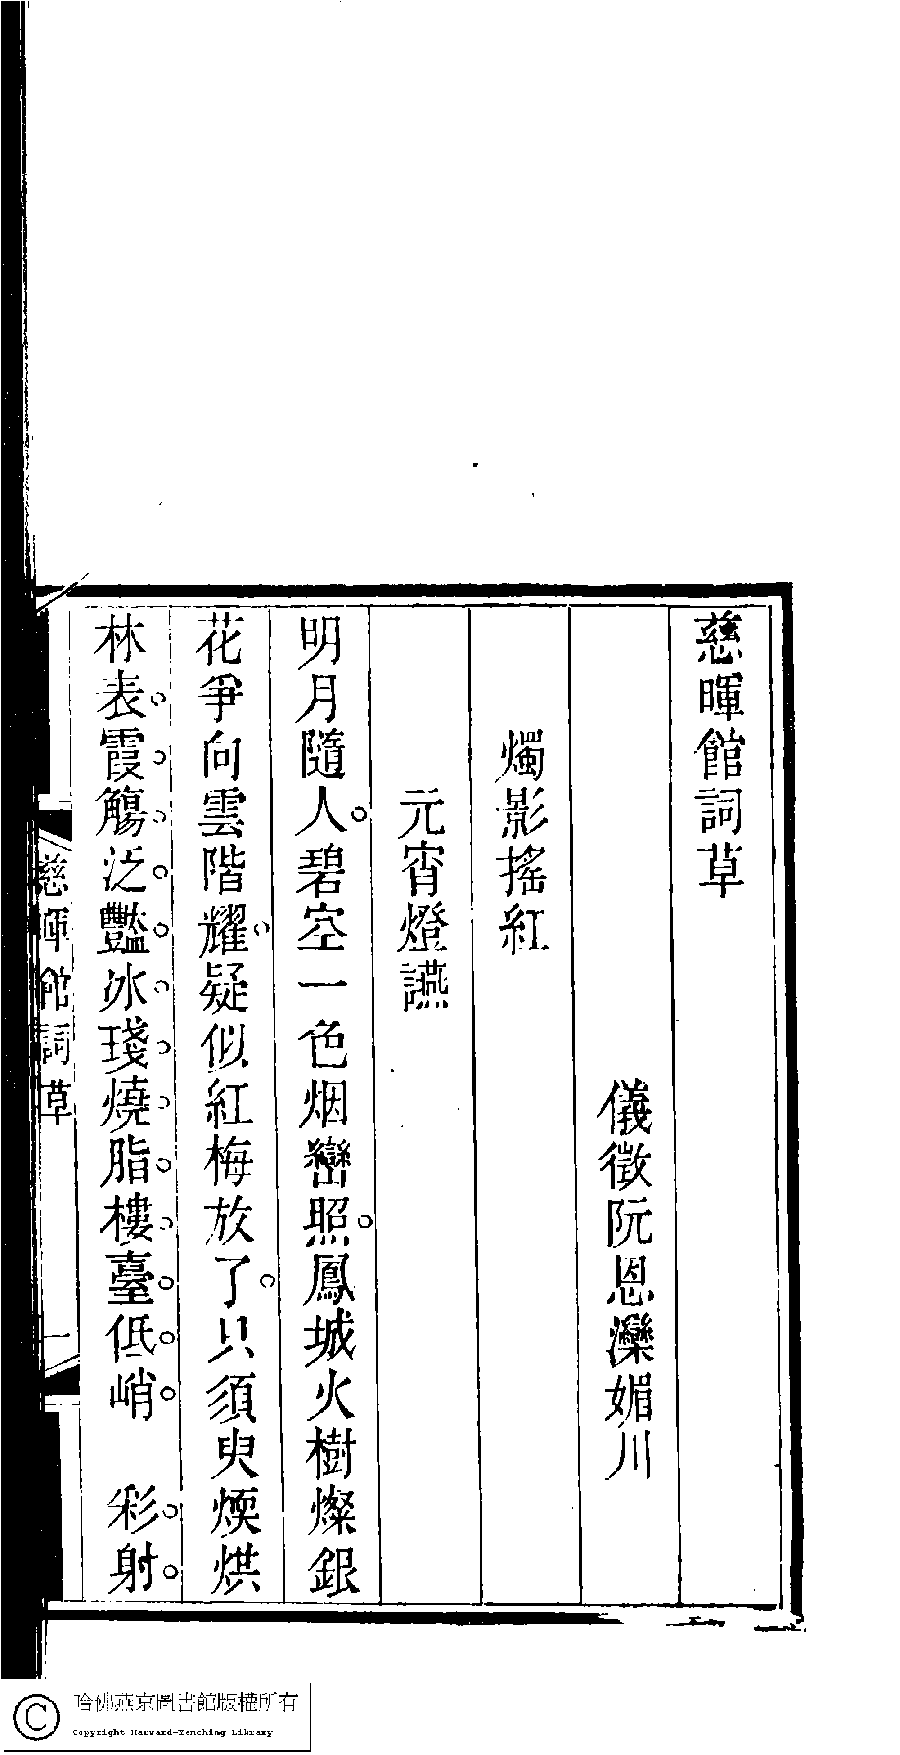 慈暉館詞草
儀徵阮恩灤媚川
燭影搖紅
元宵燈讌
明月隨人。碧空一色烟巒照。鳳城火樹燦銀
花爭向雲階耀。疑似紅梅放了。只須臾煗烘
林表。霞。觴。泛。豔。冰。琖。燒。脂。樓。臺。低。峭。 彩。射。
慈暉館詞草
一
哈佛燕京圖書館版權所有
Copyright Harvard-Yenching Library